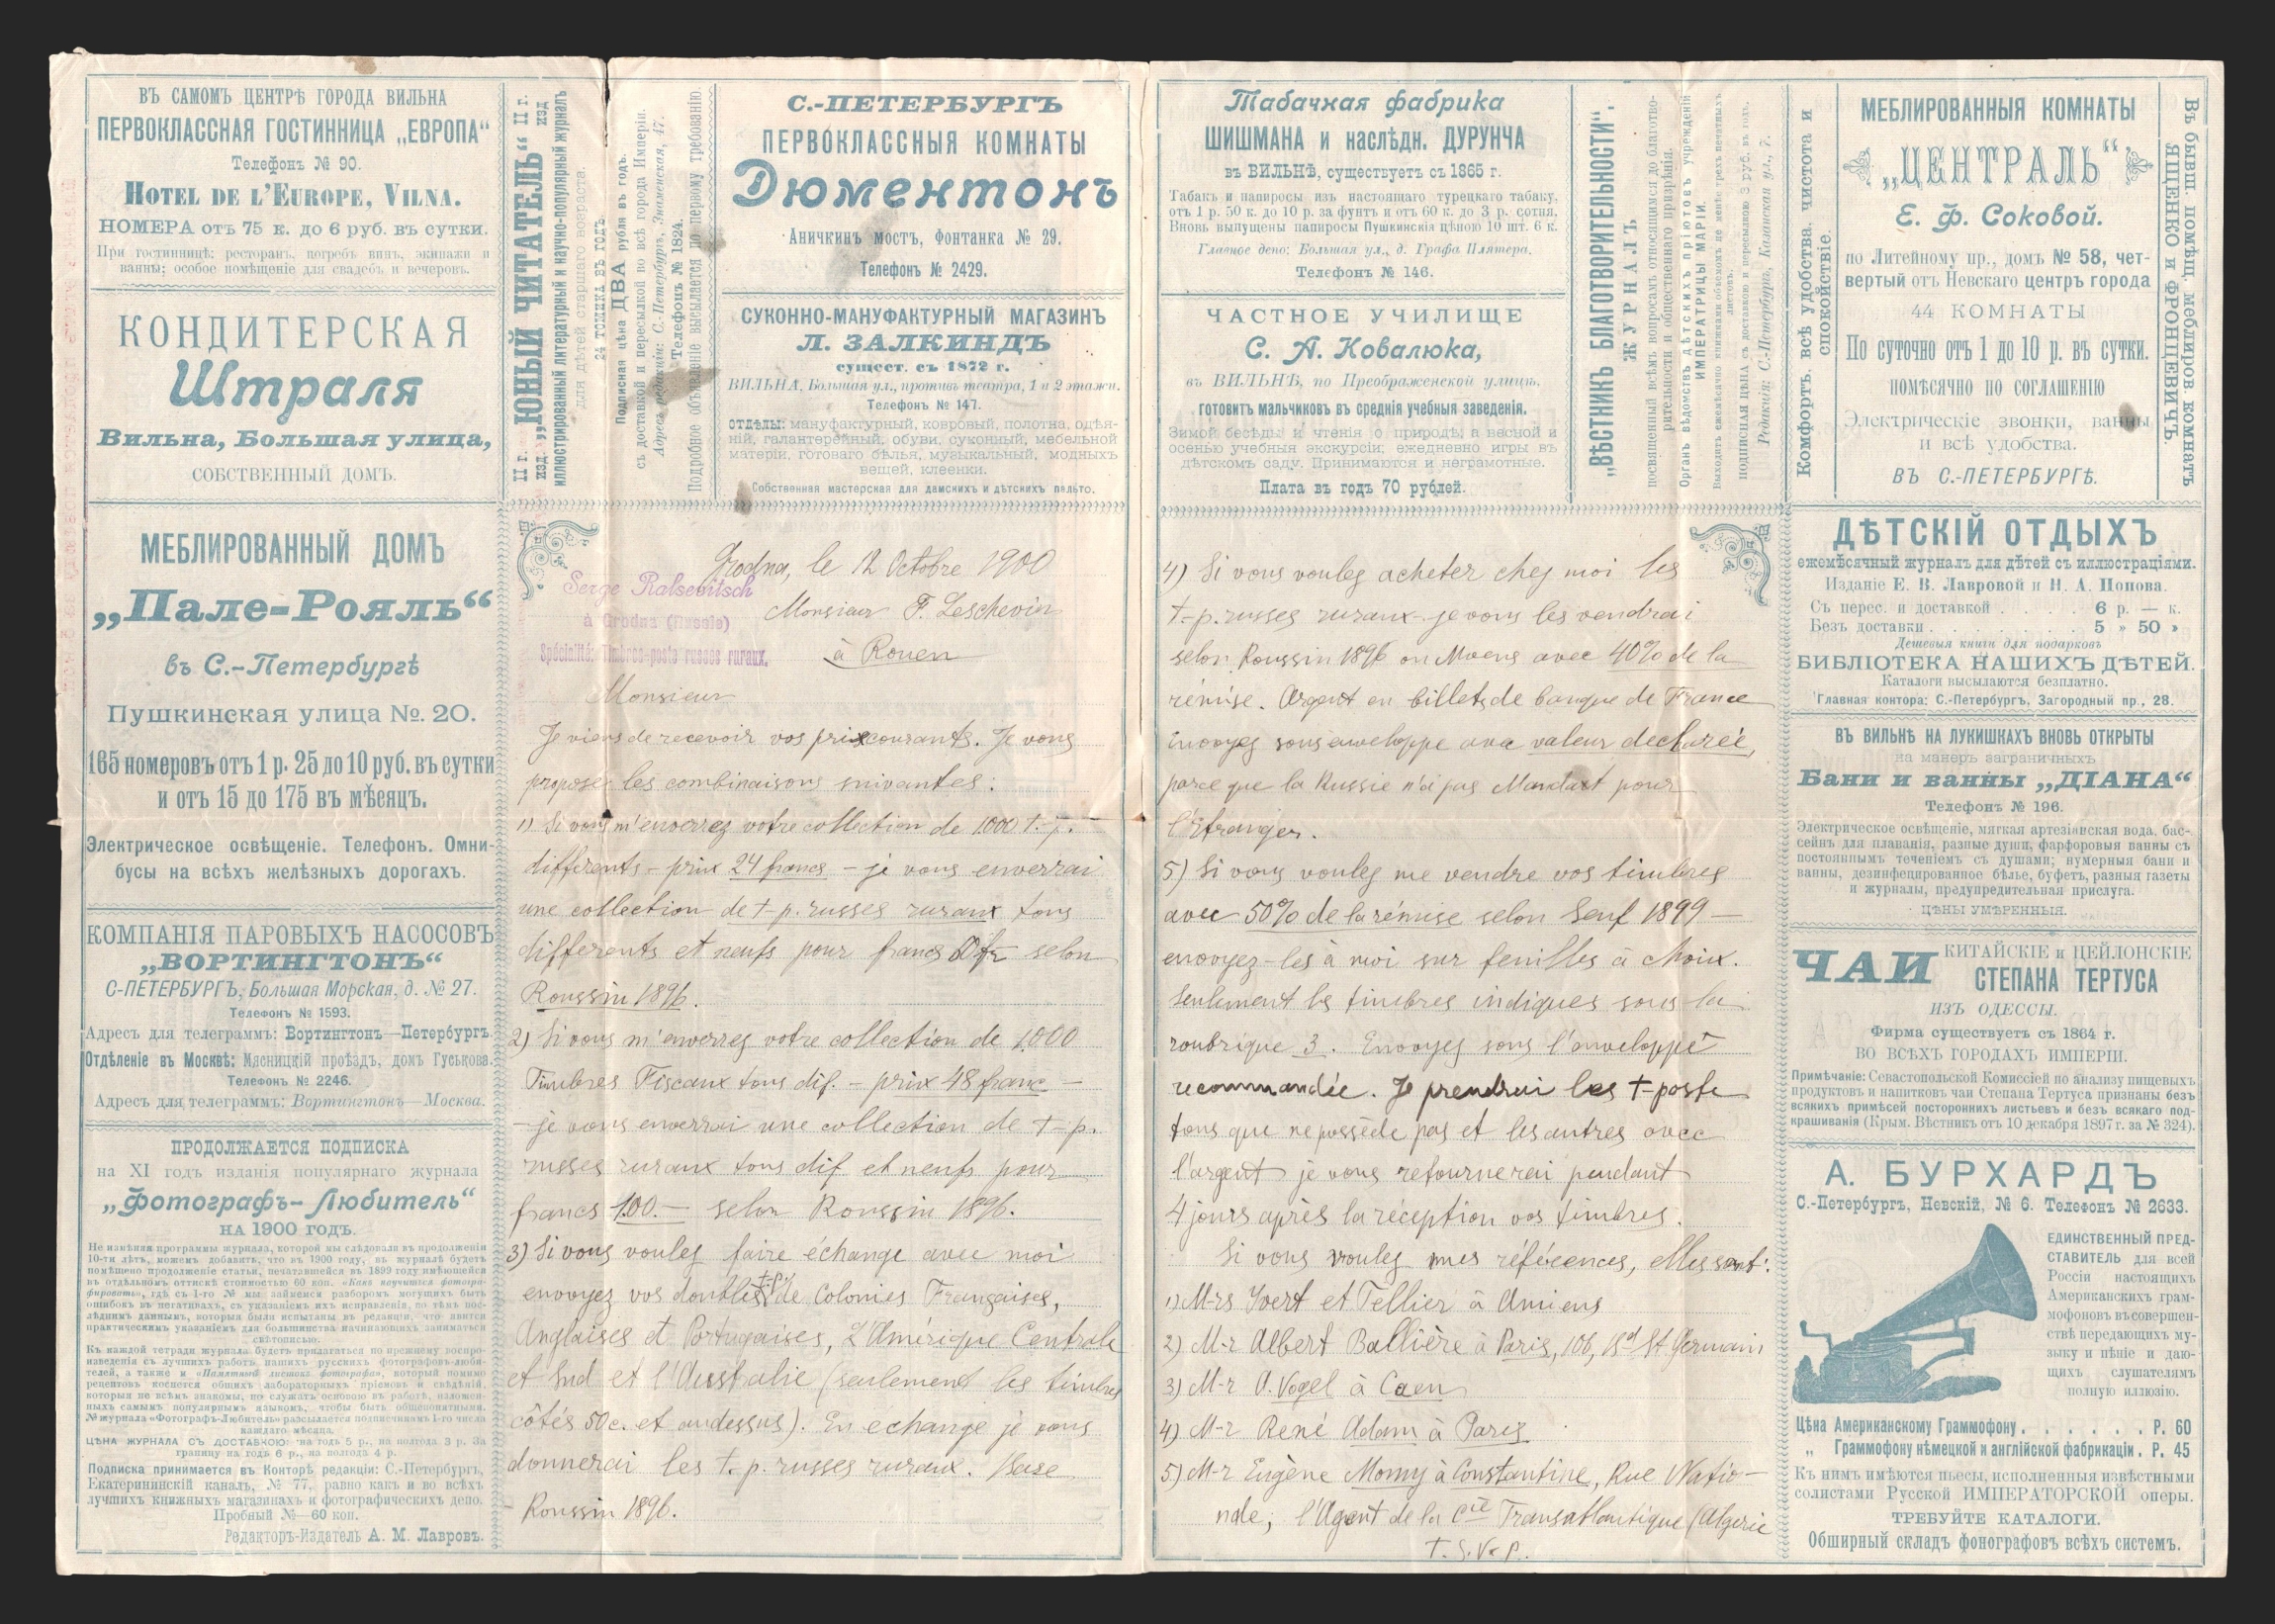 ВЪ САМОМЪ ЦЕНТРѢ ГОРОДА ВИЛЬНА
ПЕРВОКЛАССНАЯ ГОСТИННИЦА „ЕВРОПА“
Телефонъ № 90.
HOTEL DE L'EUROPE, VILNA.
НОМЕРА отъ 75 к. до 6 руб. въ сутки.
При гостинницѣ: ресторанъ, погребъ винъ, экипажи и
ванны; особое помѣщеніе для свадебъ и вечеровъ.
КОНДИТЕРСКАЯ
Штраля
Вильна, Большая улица,
СОБСТВЕННЫЙ ДОМЪ.
МЕБЛИРОВАННЫЙ ДОМЪ
„Пале-Рояль“
въ С.-Петербургѣ
Пушкинская улица №. 20.
165 номеровъ отъ 1 р. 25 до 10 руб. въ сутки
и отъ 15 до 175 въ мѣсяцъ.
Электрическое освѣщеніе. Телефонъ. Омни-
бусы на всѣхъ желѣзныхъ дорогахъ.
КОМПАНІЯ ПАРОВЫХЪ НАСОСОВЪ
„ВОРТИНГТОНЪ“
С-ПЕТЕРБУРГЪ, Большая Морская, д. № 27.
Телефонъ № 1593.
Адресъ для телеграммъ: Вортингтонъ—Петербургъ.
Отдѣленіе въ Москвѣ: Мясницкій проѣздъ, домъ Гуськова.
Телефонъ № 2246.
Адресъ для телеграммъ: Вортингтонъ—Москва.
ПРОДОЛЖАЕТСЯ ПОДПИСКА
на XI годъ изданія популярнаго журнала
„Фотографъ-Любитель“
НА 1900 ГОДЪ.
Не измѣняя программы журнала, которой мы слѣдовали въ продолженіи
10-ти лѣтъ, можемъ добавить, что въ 1900 году, въ журналѣ будетъ
помѣщено продолженіе статьи, печатавшейся въ 1899 году имѣющейся
въ отдѣльномъ оттискѣ стоимостью 60 коп. «Какъ научиться фотогра-
фировать», гдѣ съ 1-го № мы займемся разборомъ могущихъ быть
ошибокъ въ негативахъ, съ указаніемъ ихъ исправленія, по тѣмъ пос-
лѣднимъ даннымъ, которыя были испытаны въ редакціи, что явится
практическимъ указаніемъ для большинства начинающихъ заниматься
свѣтописью.
Къ каждой тетради журнала будетъ прилагаться по прежнему воспро-
изведенія съ лучшихъ работъ нашихъ русскихъ фотографовъ-люби-
телей, а также и «Памятный листокъ фотографа», который помимо
рецептовъ коснется общихъ лабораторныхъ пріемовъ и свѣдѣній,
которыя не всѣмъ знакомы, но служатъ основою въ работѣ, изложен-
ныхъ самымъ популярнымъ языкомъ, чтобы быть общепонятными.
№ журнала «Фотографъ-Любитель» разсылается подписчикамъ 1-го числа
каждаго мѣсяца.
ЦѢНА ЖУРНАЛА СЪ ДОСТАВКОЮ: на годъ 5 р., на полгода 3 р. За
границу на годъ 6 р., на полгода 4 р.
Подписка принимается въ Конторѣ редакціи: С.-Петербургъ,
Екатерининскій каналъ, № 77, равно какъ и во всѣхъ
лучшихъ книжныхъ магазинахъ и фотографическихъ депо.
Пробный №—60 коп.
Редакторъ-Издатель А. М. Лавровъ.
II г. изд. „ЮНЫЙ ЧИТАТЕЛЬ“ II г. изд
иллюстрированный литературный и научно-популярный журналъ
для дѣтей старшаго возраста.
24 ТОМИКА ВЪ ГОДЪ
Подписная цѣна ДВА рубля въ годъ.
съ доставкой и пересылкой во всѣ города Имперіи.
Адресъ редакціи: С.-Петербургъ, Знаменская, 47.
Телефонъ № 1824.
Подробное объявленіе высылается по первому требованію
С.-ПЕТЕРБУРГЪ
ПЕРВОКЛАССНЫЯ КОМНАТЫ
Дюментонъ
Аничкинъ мостъ, Фонтанка № 29.
Телефонъ № 2429.
СУКОННО-МАНУФАКТУРНЫЙ МАГАЗИНЪ
Л. ЗАЛКИНДЪ
сущест. съ 1872 г.
ВИЛЬНА, Большая ул., противъ театра, 1 и 2 этажи.
Телефонъ № 147.
ОТДѢЛЫ: мануфактурный, ковровый, полотна, одѣя-
ній, галантерейный, обуви, суконный, мебельной
матеріи, готоваго бѣлья, музыкальный, модныхъ
вещей, клеенки.
Собственная мастерская для дамскихъ и дѣтскихъ пальто.
Grodna, le 12 Octobre 1900
Serge Ralsevitsch
à Grodna (Russie)
Spécialité: Timbres-poste russes ruraux.
Monsieur F. Leschevin
à Rouen
Monsieur
Je viens de recevoir vos prix courants. Je vous
propose les combinaisons suivantes:
1) Si vous m'enverrez votre collection de 1000 t.-p.
differents – prix 24 francs – je vous enverrai
une collection de t-p. russes ruraux tous
differents et neufs pour francs selon
Roussin 1896.
2) Si vous m'enverrez votre collection de 1000
Timbres Fiscaux tous dif. – prix 48 franc –
– je vous enverrai une collection de t-p.
russes ruraux tous dif. et neufs pour
francs 100.– selon Roussin 1896.
3) Si vous voulez faire échange avec moi
envoyez vos doubles t-p. de Colonies Françaises,
Anglaises et Portugaises, L'Amérique Centrale
et Sud et l'Australie (seulement les timbres
côtés 50 c. et audessus). En echange je vous
donnerai les t.-p. russes ruraux. Base
– Roussin 1896.
Табачная фабрика
ШИШМАНА и наслѣдн. ДУРУНЧА
въ ВИЛЬНѢ, существуетъ съ 1865 г.
Табакъ и папиросы изъ настоящаго турецкаго табаку,
отъ 1 р. 50 к. до 10 р. за фунтъ и отъ 60 к. до 3 р. сотня.
Вновь выпущены папиросы Пушкинскія цѣною 10 шт. 6 к.
Главное депо: Большая ул., д. Графа Плятера.
Телефонъ № 146.
ЧАСТНОЕ УЧИЛИЩЕ
С. А. Ковалюка,
въ ВИЛЬНѢ, по Преображенской улицѣ,
готовитъ мальчиковъ въ среднія учебныя заведенія.
Зимой бесѣды и чтенія о природѣ, а весной и
осенью учебныя экскурсіи; ежедневно игры въ
дѣтскомъ саду. Принимаются и неграмотные.
Плата въ годъ 70 рублей.
„ВѢСТНИКЪ БЛАГОТВОРИТЕЛЬНОСТИ“.
ЖУРНАЛЪ
посвященный всѣмъ вопросамъ относящимся до благотво-
рительности и общественнаго призрѣнія.
Органъ вѣдомствъ дѣтскихъ пріютовъ учрежденій
ИМПЕРАТРИЦЫ МАРІИ.
Выходитъ ежемѣсячно книжками объемомъ не менѣе трехъ печатныхъ
листовъ.
ПОДПИСНАЯ ЦѢНА съ доставкою и пересылкою 3 руб. въ годъ.
Редакція: С.-Петербургъ, Казанская ул., 7.
Комфортъ, всѣ удобства, чистота и
спокойствіе.
МЕБЛИРОВАННЫЯ КОМНАТЫ
„ЦЕНТРАЛЬ“
Е. Ф. Соковой.
по Литейному пр., домъ № 58, чет-
вертый отъ Невскаго центръ города
44 КОМНАТЫ
По суточно отъ 1 до 10 р. въ сутки.
ПОМѢСЯЧНО ПО СОГЛАШЕНІЮ
Электрическіе звонки, ванны
и всѣ удобства.
ВЪ С.-ПЕТЕРБУРГѢ.
Въ бывш. помѣщ. меблиров. комнатъ
ЯЩЕНКО и ФРОНЦЕВИЧЪ.
4) Si vous voulez acheter chez moi les
t-p. russes ruraux – je vous les vendrai
selon Roussin 1896 ou Moens avec 40% de la
rémise. Argent en billets de banque de France
envoyez sous enveloppe avec valeur declarée,
parce que la Russie n'a pas Mandat pour
l'Etranger.
5) Si vous voulez me vendre vos timbres
avec 50% de la rémise selon Senf 1899 –
envoyez-les à moi sur feuilles à choix.
Seulement les timbres indiques sous la
roubrique 3. Envoyez sous l'enveloppe
recommandée. Je prendrai les t-poste
tous que ne possède pas et les autres avec
l'argent je vous retournerai pendant
4 jours après la réception vos timbres.
Si vous voulez mes références, elles sont:
1) M-rs Yvert et Tellier à Amiens
2) M-r Albert Ballière à Paris, 106, Bd St Germain
3) M-r A. Vogel à Caen
4) M-r René Adam à Paris
5) M-r Eugène Momy à Constantine, Rue Natio-
nale, l'Agent de la Cie Transatlantique (Algerie
T.S.V.P.
ДѢТСКІЙ ОТДЫХЪ
ежемѣсячный журналъ для дѣтей съ иллюстраціями.
Изданіе Е. В. Лавровой и Н. А. Попова.
Съ перес. и доставкой . . . . 6 р. — к.
Безъ доставки . . . . . . . 5 » 50 »
Дешевыя книги для подарковъ
БИБЛІОТЕКА НАШИХЪ ДѢТЕЙ.
Каталоги высылаются безплатно.
Главная контора: С.-Петербургъ, Загородный пр., 28.
ВЪ ВИЛЬНѢ НА ЛУКИШКАХЪ ВНОВЬ ОТКРЫТЫ
на манеръ заграничныхъ
Бани и ванны „ДІАНА“
Телефонъ № 196.
Электрическое освѣщеніе, мягкая артезіанская вода, бас-
сейнъ для плаванія, разные души, фарфоровыя ванны съ
постояннымъ теченіемъ съ душами; нумерныя бани и
ванны, дезинфецированное бѣлье, буфетъ, разныя газеты
и журналы, предупредительная прислуга.
ЦѢНЫ УМѢРЕННЫЯ.
ЧАИ КИТАЙСКІЕ и ЦЕЙЛОНСКІЕ
СТЕПАНА ТЕРТУСА
ИЗЪ ОДЕССЫ.
Фирма существуетъ съ 1864 г.
ВО ВСѢХЪ ГОРОДАХЪ ИМПЕРІИ.
Примѣчаніе: Севастопольской Комиссіей по анализу пищевыхъ
продуктовъ и напитковъ чаи Степана Тертуса признаны безъ
всякихъ примѣсей постороннихъ листьевъ и безъ всякаго под-
крашиванія (Крым. Вѣстникъ отъ 10 декабря 1897 г. за № 324).
А. БУРХАРДЪ
С.-Петербургъ, Невскій, № 6. Телефонъ № 2633.
ЕДИНСТВЕННЫЙ ПРЕД-
СТАВИТЕЛЬ для всей
Россіи настоящихъ
Американскихъ грам-
мофоновъ въ совершен-
ствѣ передающихъ му-
зыку и пѣніе и даю-
щихъ слушателямъ
полную иллюзію.
Цѣна Американскому Граммофону . . . . . . Р. 60
„ Граммофону нѣмецкой и англійской фабрикаціи . Р. 45
Къ нимъ имѣются пьесы, исполненныя извѣстными
солистами Русской ИМПЕРАТОРСКОЙ оперы.
ТРЕБУЙТЕ КАТАЛОГИ.
Обширный складъ фонографовъ всѣхъ системъ.